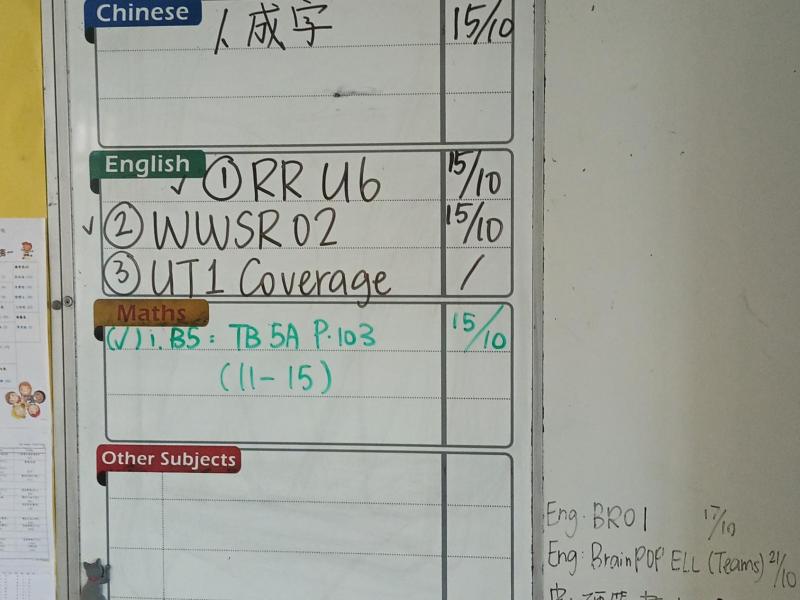 Chinese
成字 15/10
English
✓ ① RR U6 15/10
✓ ② WWSR 02 15/10
③ UT1 Coverage /
Maths
(✓) i. B5: TB 5A P.103 15/10
(11-15)
Other Subjects
Eng. BR01 17/10
Eng: BrainPOP ELL (Teams) 21/10